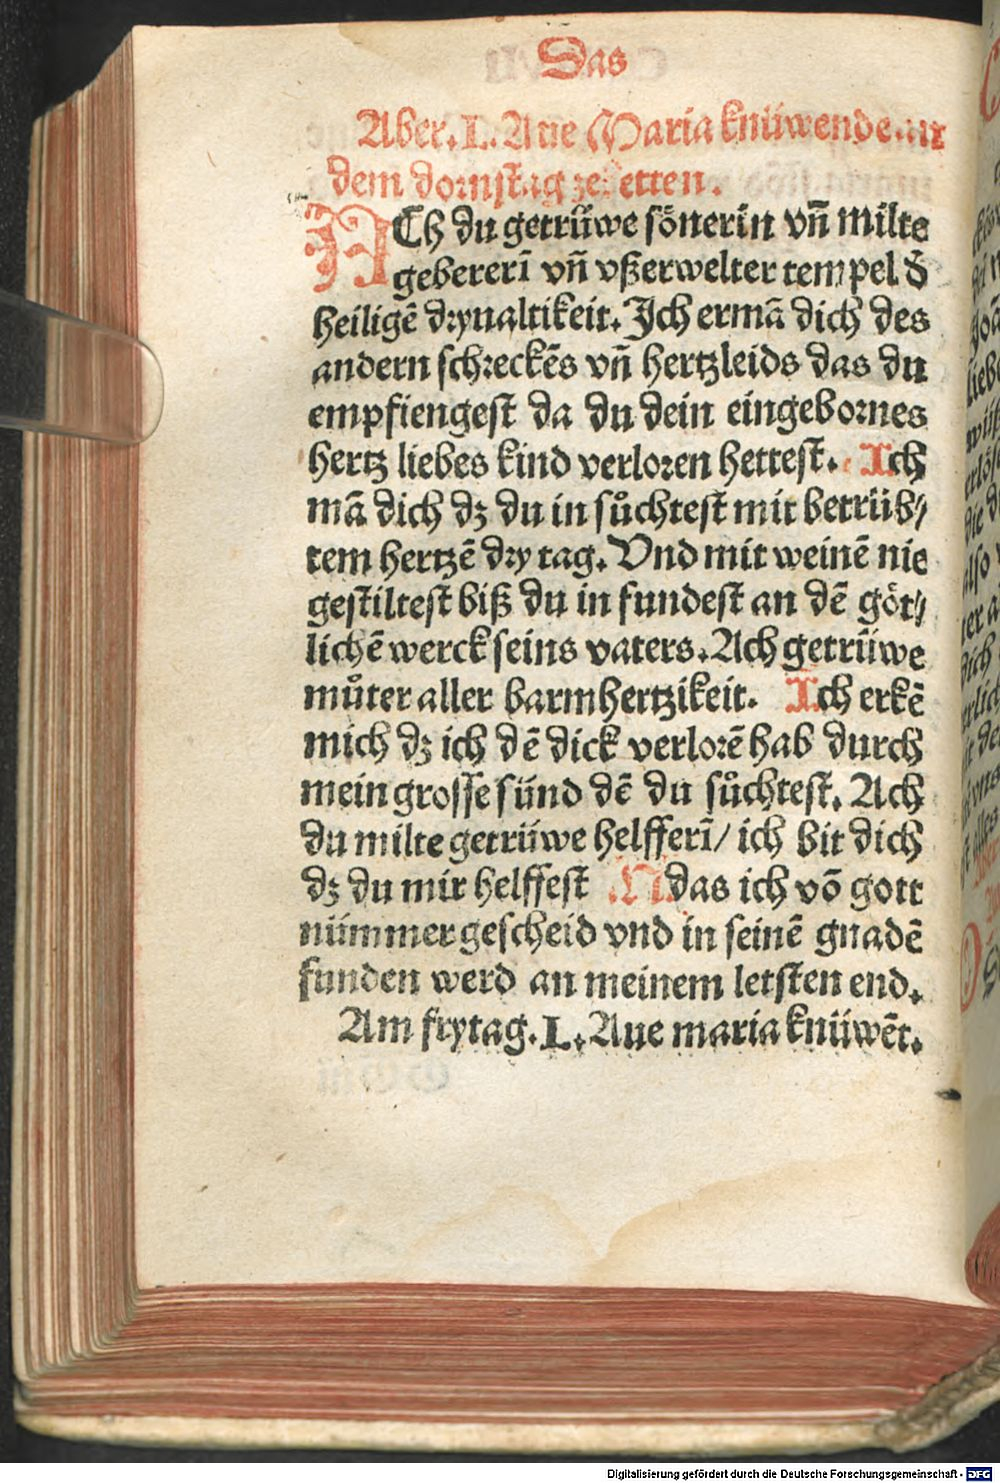 Das
Aber. L. Aue Maria knüwende. ux
dem dornstag ze betten.
ACh du getrüwe sönerin vñ milte
gebererī vñ vßerwelter tempel d̄
heiligē dryualtikeit. Ich ermā dich des
andern schreckēs vñ hertzleids das du
empfiengest da du dein eingebornes
hertz liebes kind verloren hettest. Ich
mā dich dz du in sůchtest mit betrüb⸗
tem hertzē dry tag. Vnd mit weinē nie
gestiltest biß du in fundest an dē göt⸗
lichē werck seins vaters. Ach getrüwe
můter aller barmhertzikeit. Ich erkē
mich dz ich dē dick verlorē hab durch
mein grosse sünd dē du sůchtest. Ach
du milte getrüwe helfferī/ ich bit dich
dz du mir helffest N das ich vō gott
nümmer gescheid vnd in seinē gnadē
funden werd an meinem letsten end.
Am frytag. L. Aue maria knüwēt.
Digitalisierung gefördert durch die Deutsche Forschungsgemeinschaft - DFG